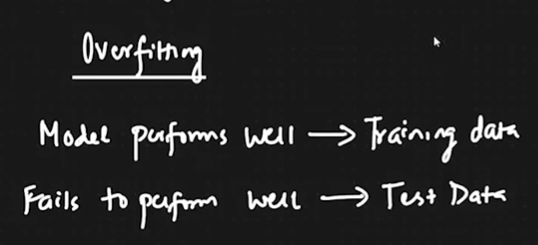 Overfitting
Model performs well → Training data
Fails to perform well → Test Data